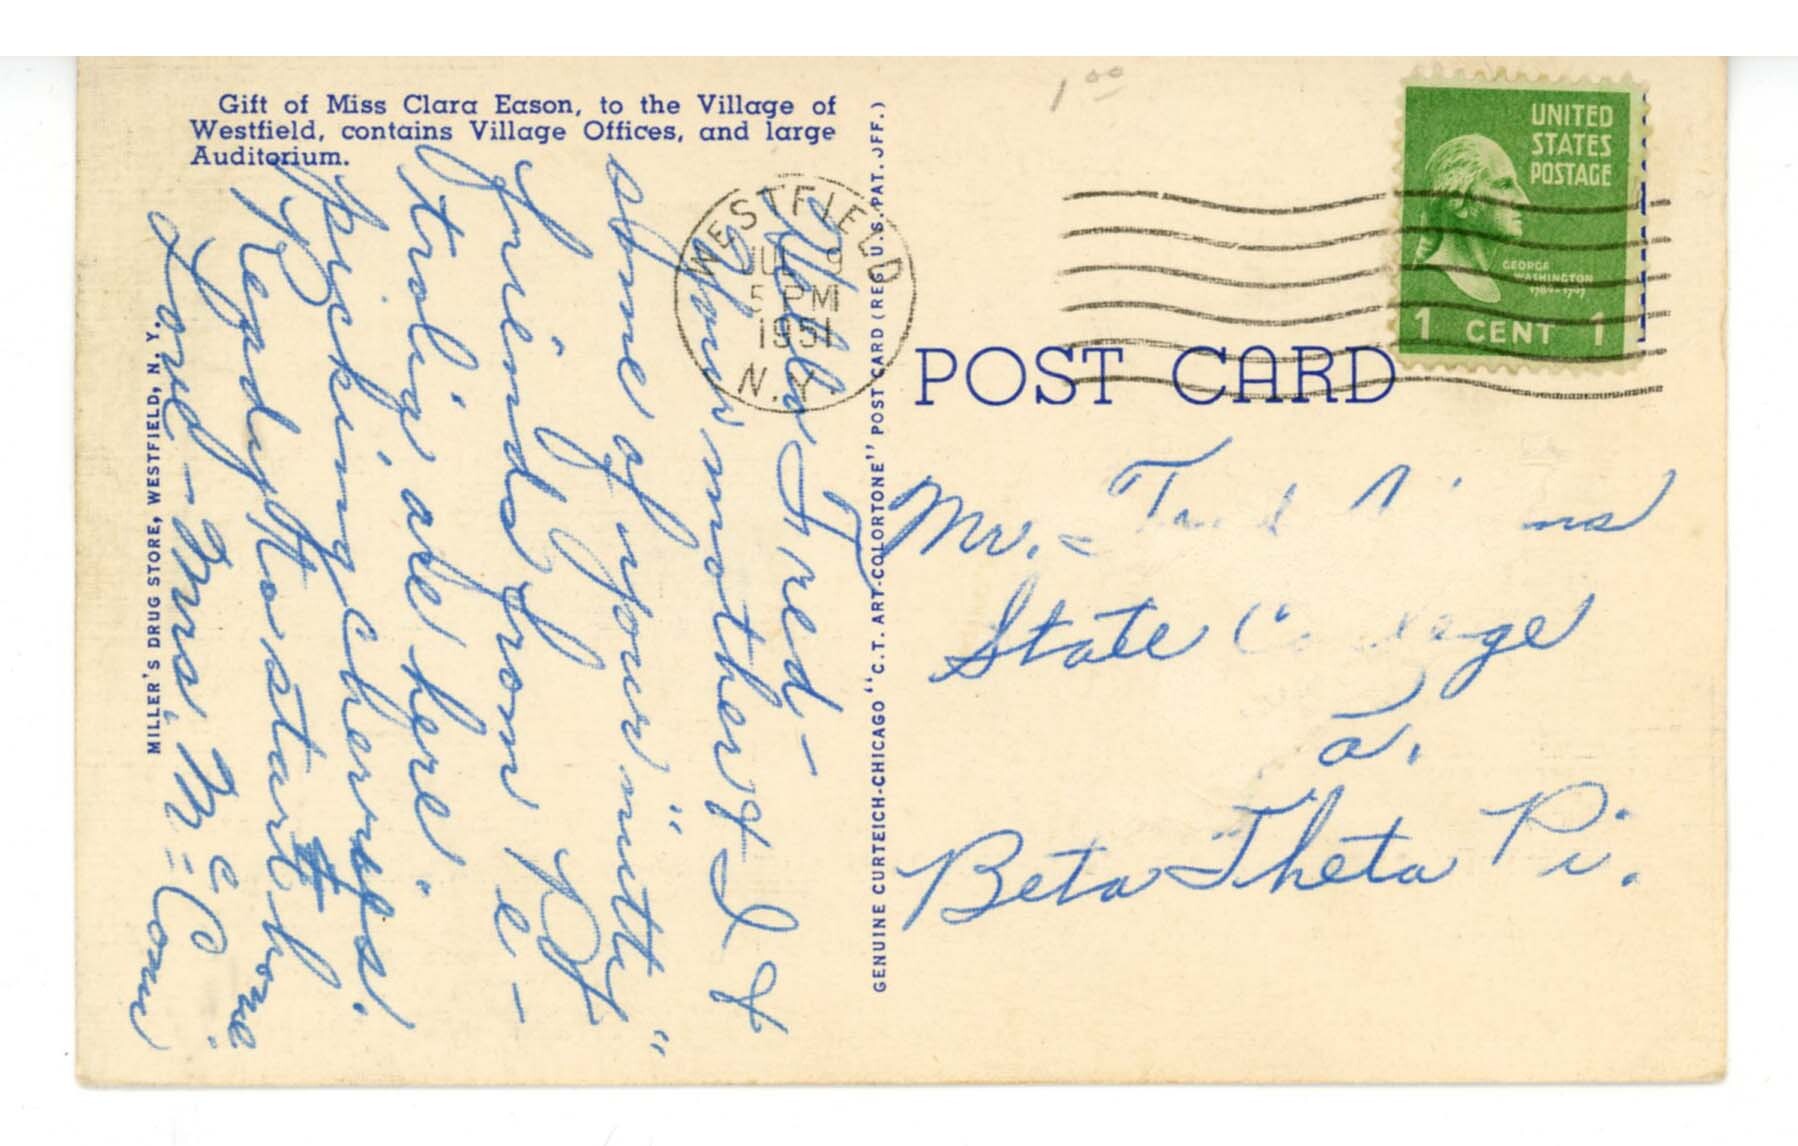 Gift of Miss Clara Eason, to the Village of
Westfield, contains Village Offices, and large
Auditorium.
MILLER'S DRUG STORE, WESTFIELD, N. Y.
Hello Fred-
Your mother & I &
some of your "nutty"
friends from Pe-
trolia are here
picking cherries.
Ready to start home.
Love - Mrs. McComm
WESTFIELD
JUL 9
5 PM
1951
N.Y.
GENUINE CURTEICH-CHICAGO "C.T. ART-COLORTONE" POST CARD (REG U.S. PAT. OFF.)
1 00
POST CARD
UNITED
STATES
POSTAGE
GEORGE
WASHINGTON
1789-1797
1 CENT 1
Mr.
State College
Pa.
Beta Theta Pi.